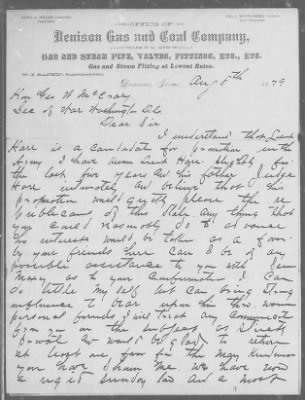 OFFICE OF
Denison Gas and Coal Company,
GAS AND STEAM PIPE, VALVES, FITTINGS, ETC., ETC.
Gas and Steam Fitting at Lowest Rates.
Denison, Texas Aug 8th 1879
Hon Geo W McCrary
Sec of War Washington D.C.
Dear Sir
I understand that Lieut
Hare is a candidate for promotion in the
Army I have known Lieut Hare slightly for
the last few years and his father Judge
Hare intimately and believe that his
promotion would greatly please the re
publicans of this State Any thing that
you could reasonably do to advance
his interests would be taken as a favor
by your friends here Can I be of any
possible assistance to you with
as to your Confirmation I can
do little my self but can bring
influence to bear upon
personal friends I will treat any Communication
from you on the subject as
and would be glad to return
at least one favor for the many kindnesses
you have shown me. We have now
a and a most